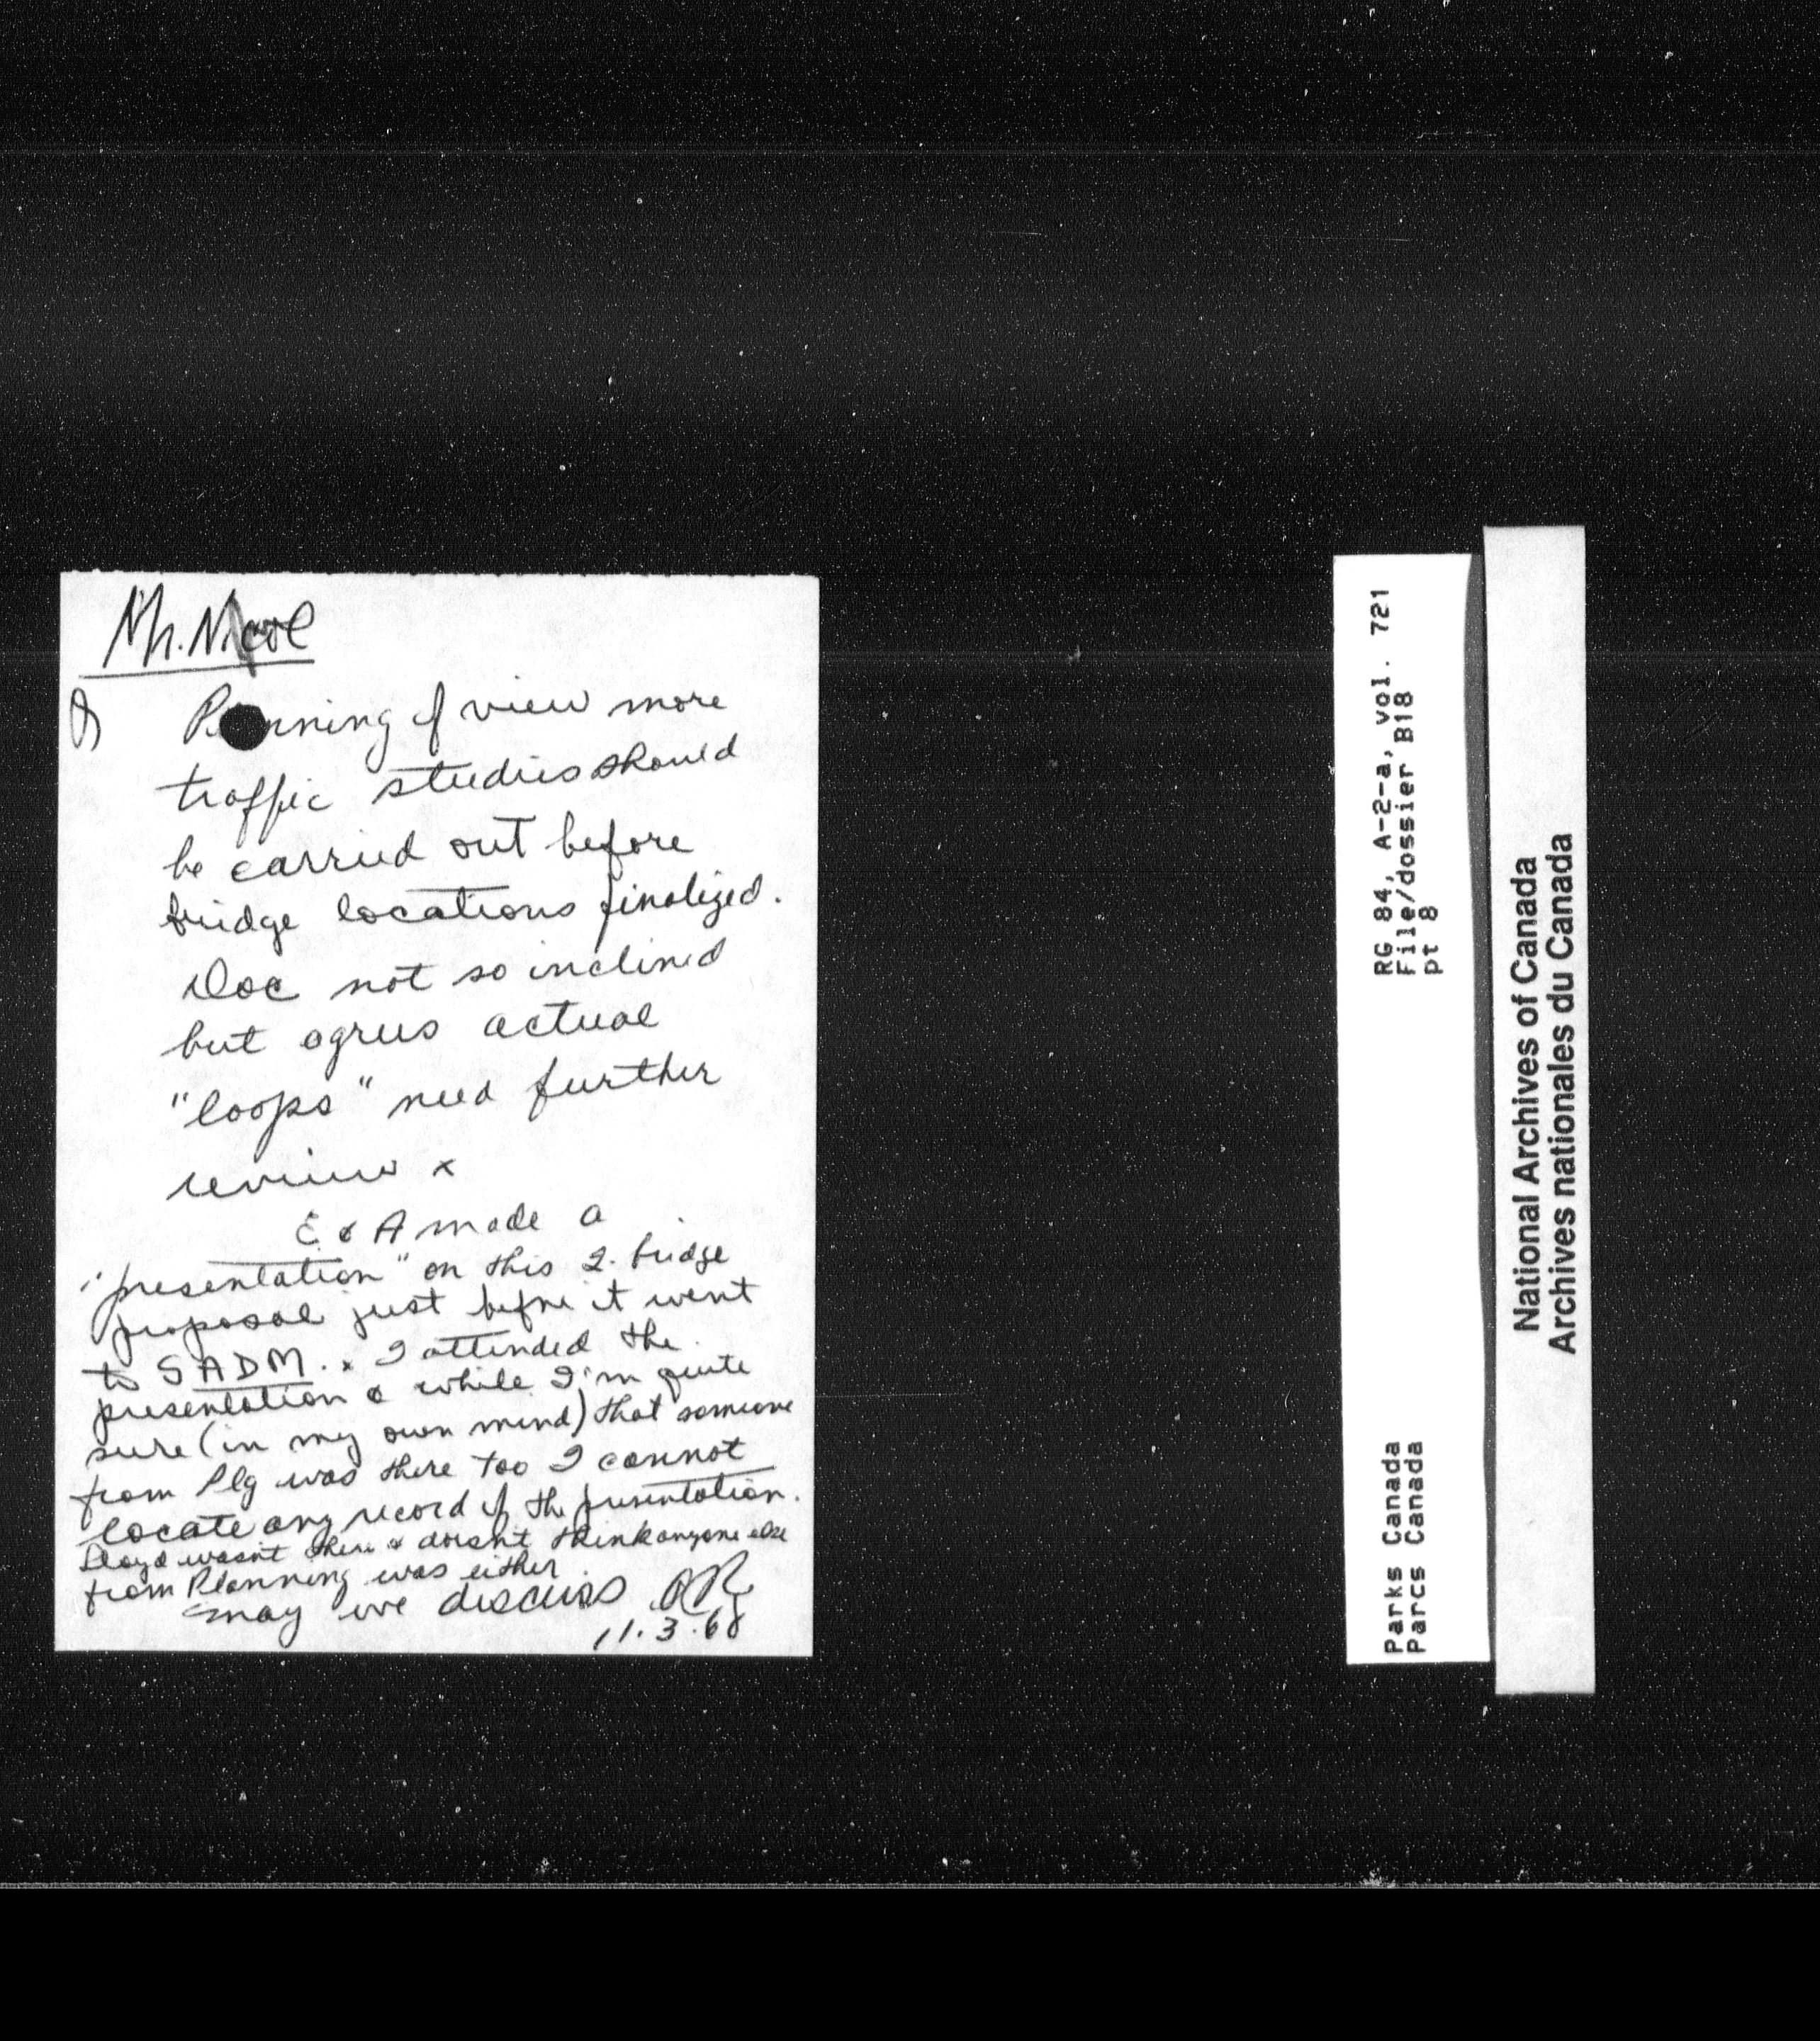 Mr. Nicol
Planning of view more
traffic studies should
be carried out before
bridge locations finalized.
Doc not so inclined
but agrees actual
"loops" need further
review x
E & A made a
"presentation" on this 2. bridge
proposal just before it went
to SADM. x I attended the
presentation & while I'm quite
sure (in my own mind) that someone
from Plg was there too I cannot
locate any record of the presentation.
Lloyd wasn't there & doesn't think anyone else
from Planning was either
may we discuss
11.3.68
RG 84, A-2-a, vol. 721
File/dossier B18
pt 8
Parks Canada
Parcs Canada
National Archives of Canada
Archives nationales du Canada